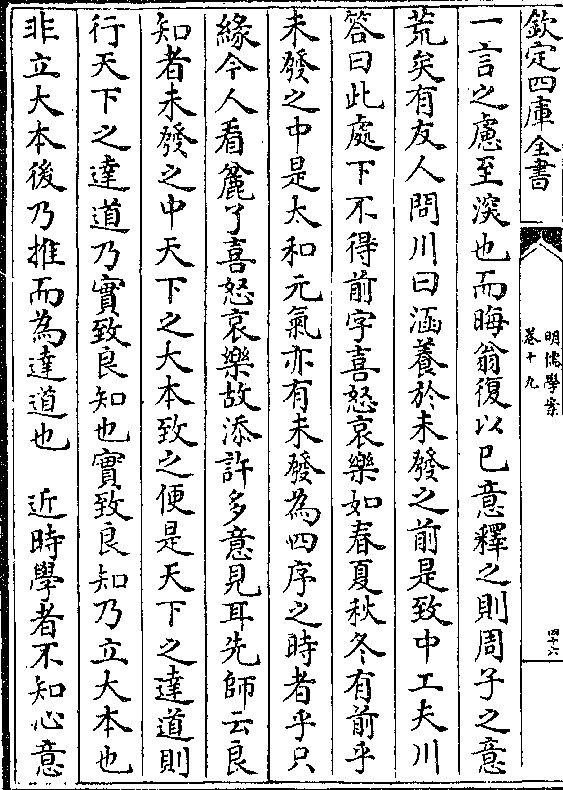 欽定四庫全書
明儒學案
卷十九
四十六
一言之慮至深也而晦翁復以己意釋之則周子之意
荒矣有友人問川曰涵養於未發之前是致中工夫川
答曰此處下不得前字喜怒哀樂如春夏秋冬有前乎
未發之中是太和元氣亦有未發為四序之時者乎只
緣今人看麄了喜怒哀樂故添許多意見耳先師云良
知者未發之中天下之大本致之便是天下之達道則
行天下之達道乃實致良知也實致良知乃立大本也
非立大本後乃推而為達道也　近時學者不知心意